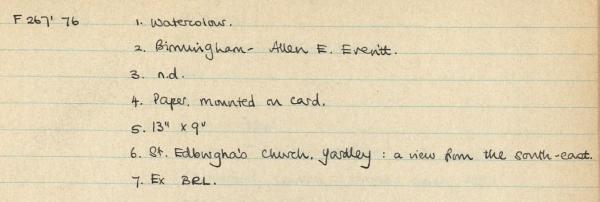 F 267' 76 1. Watercolour.
2. Birmingham - Allen E. Everitt.
3. n.d.
4. Paper, mounted on card.
5. 13" x 9"
6. St. Edburgha's Church, Yardley : a view from the south-east.
7. Ex BRL.